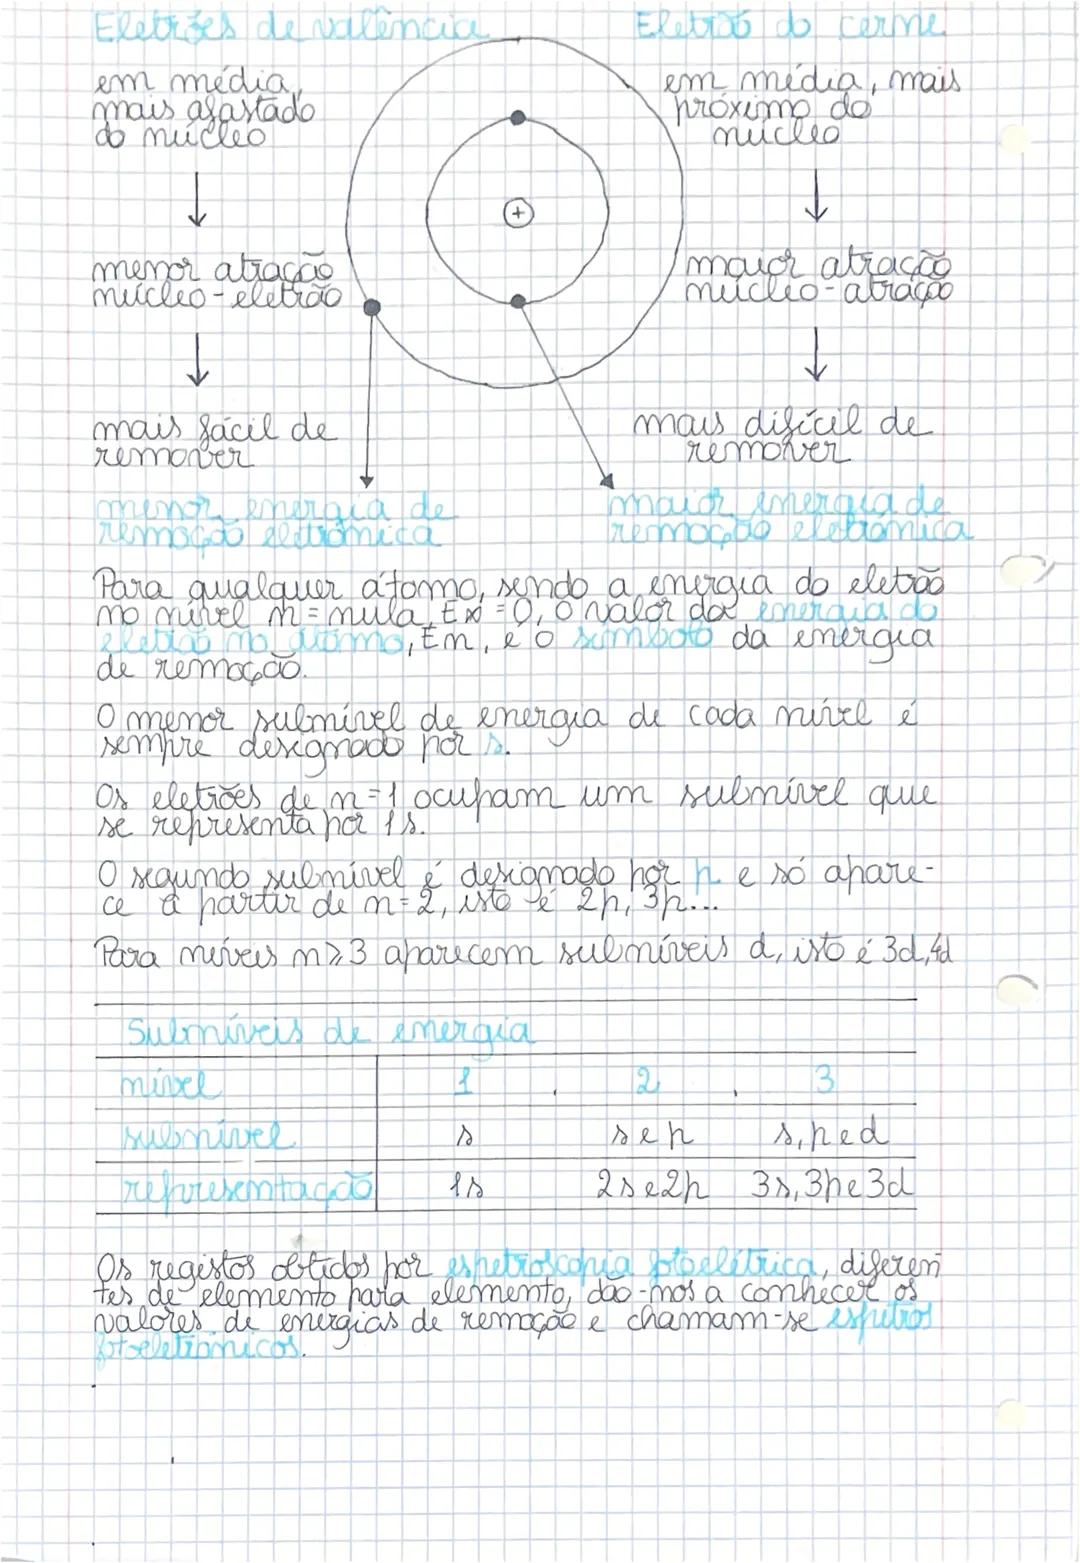 Eletrões de valência
Eletrão do cerne
em média,
mais afastado
do núcleo
em média, mais
próximo do
núcleo
+
menor atração
núcleo-eletrão
maior atração
núcleo-atração
mais fácil de
remover
mais difícil de
remover
menor energia de
remoção eletrónica
maior energia de
remoção eletrónica
Para qualquer átomo, sendo a energia do eletrão
no nível n = nula, E∞ = 0, o valor da energia do
eletrão no átomo, En, é o símbolo da energia
de remoção.
O menor subnível de energia de cada nível é
sempre designado por s.
Os eletrões de n=1 ocupam um subnível que
se representa por 1s.
O segundo subnível é designado por p e só apare-
ce a partir de n=2, isto é 2p, 3p...
Para níveis n≥3 aparecem subníveis d, isto é 3d,4d
Subníveis de energia
nível 1 2 3
subnível s s e p s, p e d
representação 1s 2s e 2p 3s, 3p e 3d
Os registos obtidos por espetroscopia fotoelétrica, diferen
tes de elemento para elemento, dão-nos a conhecer os
valores de energias de remoção e chamam-se espetros
fotoeletrónicos.